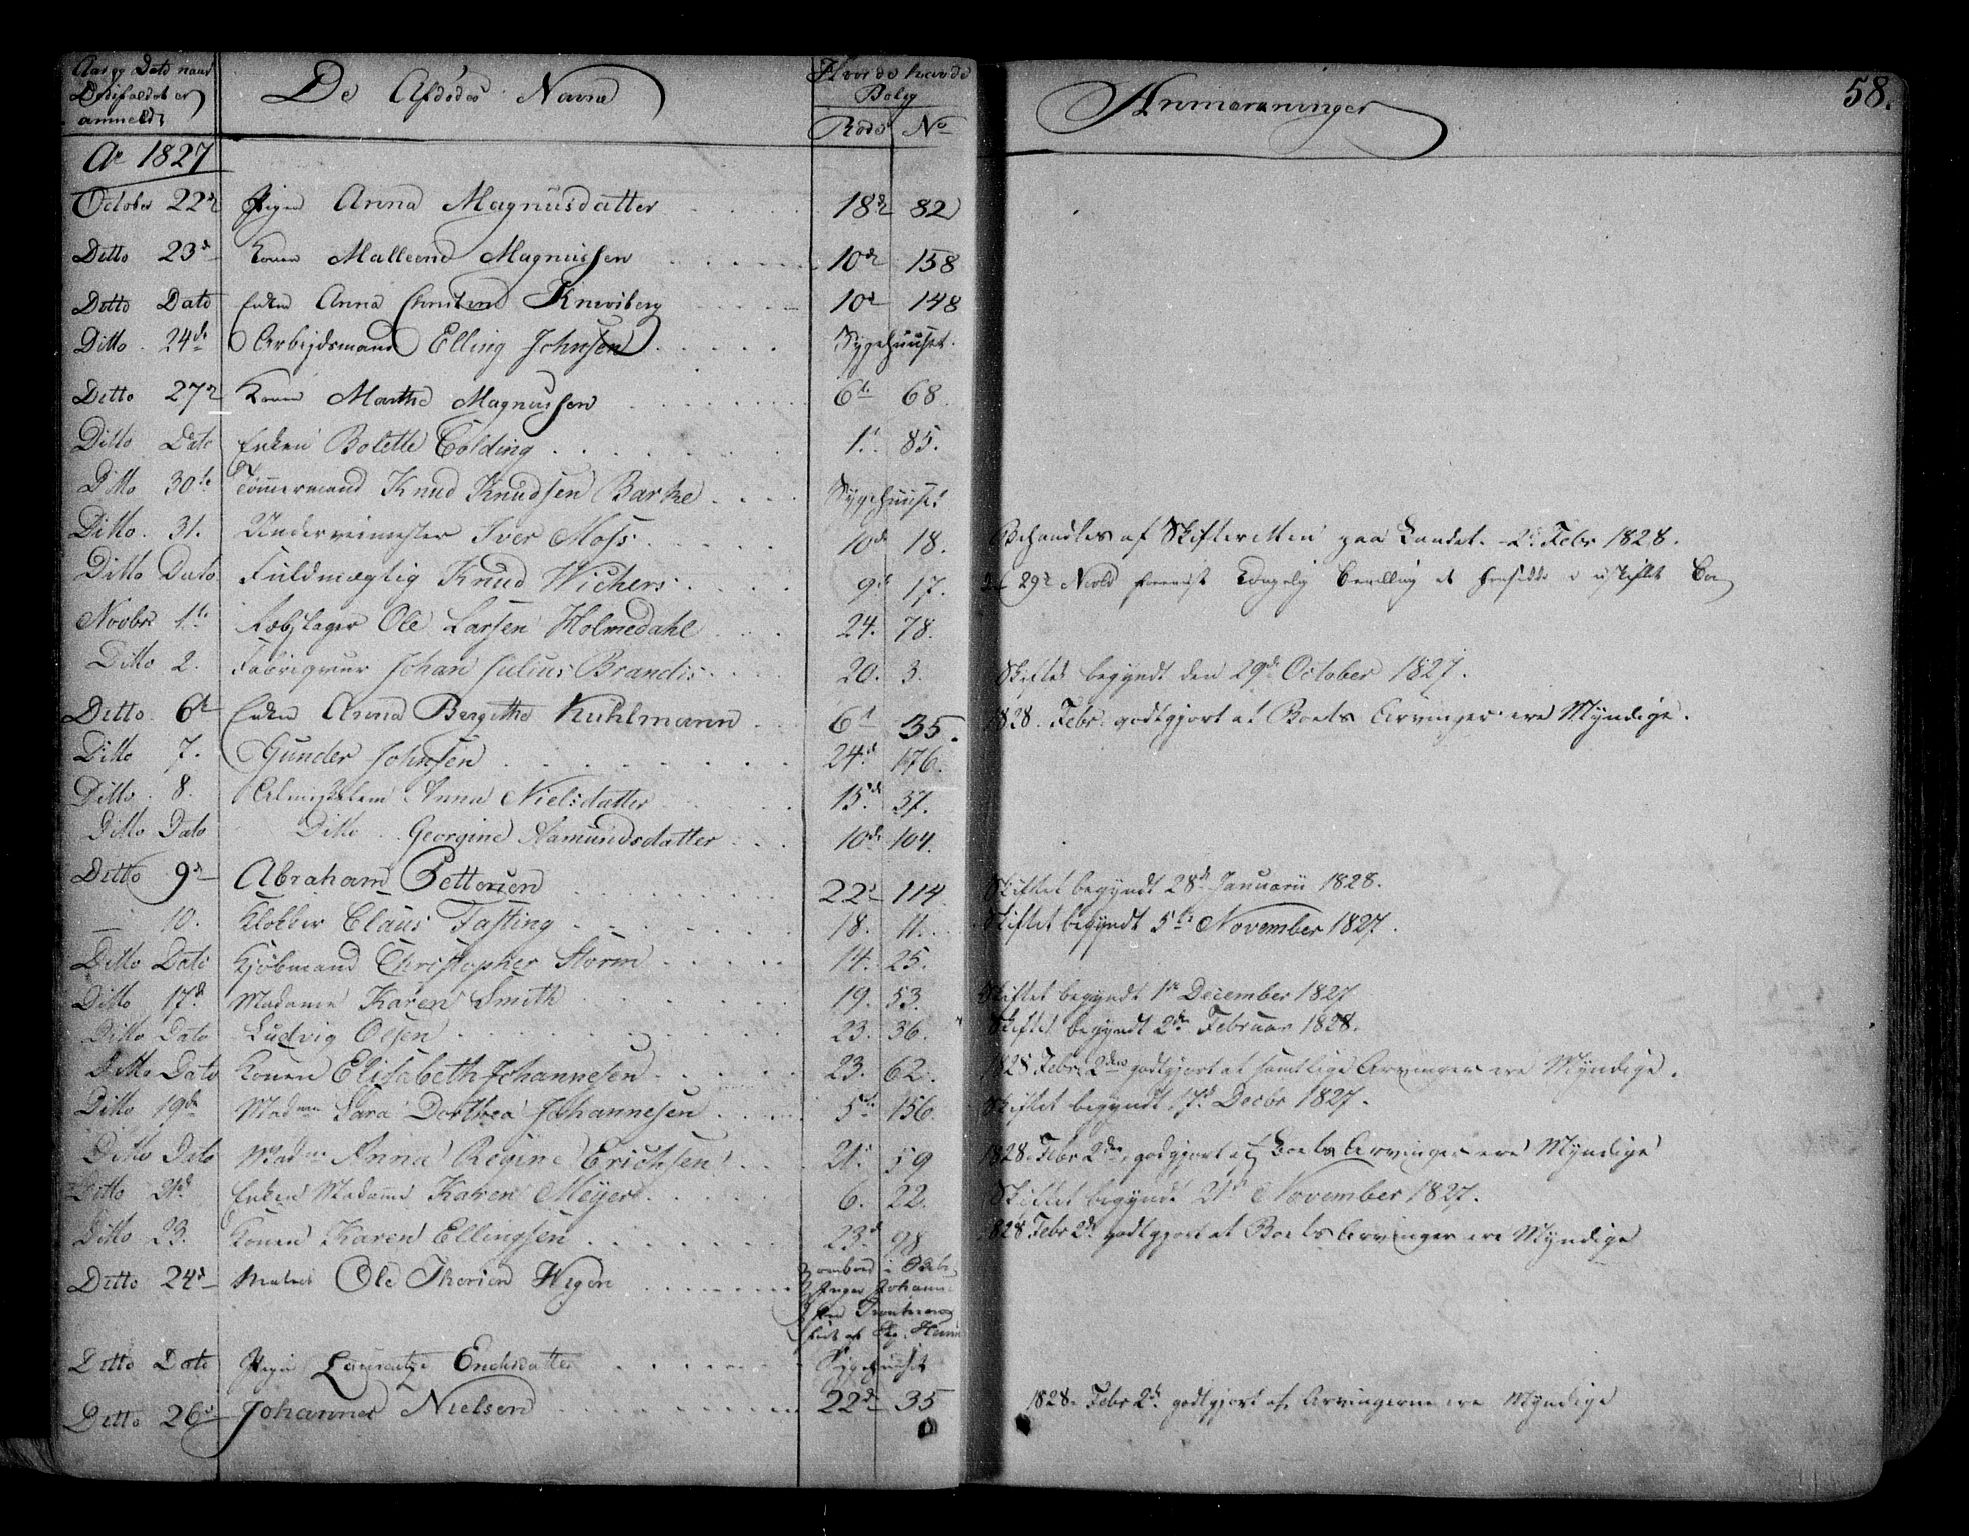 Aar og Dato naar
Dødsfaldet er
anmeldt
De Afdødes Navne
Hvor de havde
Bolig
Rode No
Anmærkninger
58.
Ao 1827
October 22de Pigen Anna Magnusdatter 18de 82
Ditto 23de Konen Malleene Magnussen 10de 158
Ditto Dato Enken Anna Christine 10de 148
Ditto 24de Arbeidsmand Elling Johnsen Sygehuuset.
Ditto 27de Konen Marthe Magnussen 6te 68
Ditto Dato Enken Bolette Colding 1ste 85.
Ditto 30te Tømmermand Knud Knudsen Barke Sygehuuset
Ditto 31. Underveimester Iver Moss 10de 18. Behandles af Skifteretten paa Landet. 2de Febr 1828.
Ditto Dato Fuldmægtig Knud Wichers 9de 17. 29de Kongelig Bevilling at hensidde i uskiftet Bo
Novbr 1ste Rebslager Ole Larsen Holmedahl 24. 78.
Ditto 2. Fabriqveur Johan Julius Brandis 20. 3. Skiftet begyndt den 29de October 1827.
Ditto 6te Enken Anna Bergithe Kuhlmann 6te 35. 1828. Febr. godtgjort at Boets Arvinger ere Myndige.
Ditto 7. Gunder Johnsen 24de 176.
Ditto 8. Almisselem Anna Nielsdatter 15de 37.
Ditto Dato Ditto Georgine Aamundsdatter 10de 104.
Ditto 9de Abraham Pettersen 22de 114 Skiftet begyndt 28de Januarii 1828.
10. Klokker Claus Fasting 18. 11. Skiftet begyndt 5te November 1827.
Ditto Dato Kjøbmand Christopher Storm 14. 25.
Ditto 17de Madame Karen Smith 19. 53. Skiftet begyndt 1ste December 1827
Ditto Dato Ludvig Olsen 23. 36. Skiftet begyndt 2den Februar 1828.
Ditto Dato Konen Elisabeth Johannesen 23. 62. 1828 Febr 2den godtgjort at samtlige Arvinger ere Myndige.
Ditto 19de Madme Sara Dorthea Johannesen 5te 156. Skiftet begyndt 17de Decbr 1827.
Ditto Dato Madme Anna Regine Erichsen 21. 59 1828. Febr 2den, godtgjort at Boets Arvinger ere Myndige
Ditto 21de Enken Madame Karen Meyer 6. 22. Skiftet begyndt 21de November 1827.
Ditto 23. Konen Karen Ellingsen 23de 98 1828 Febr 2de godtgjort at Boets Arvinger ere Myndige
Ditto 24de Matros Ole Thorsen ombord i
Ditto Dato Pigen Lauretze Endsdatter Sygehuuset
Ditto 26de Johannes Nielsen 22de 35 1828. Febr 2de godtgjort at Arvingerne ere Myndige